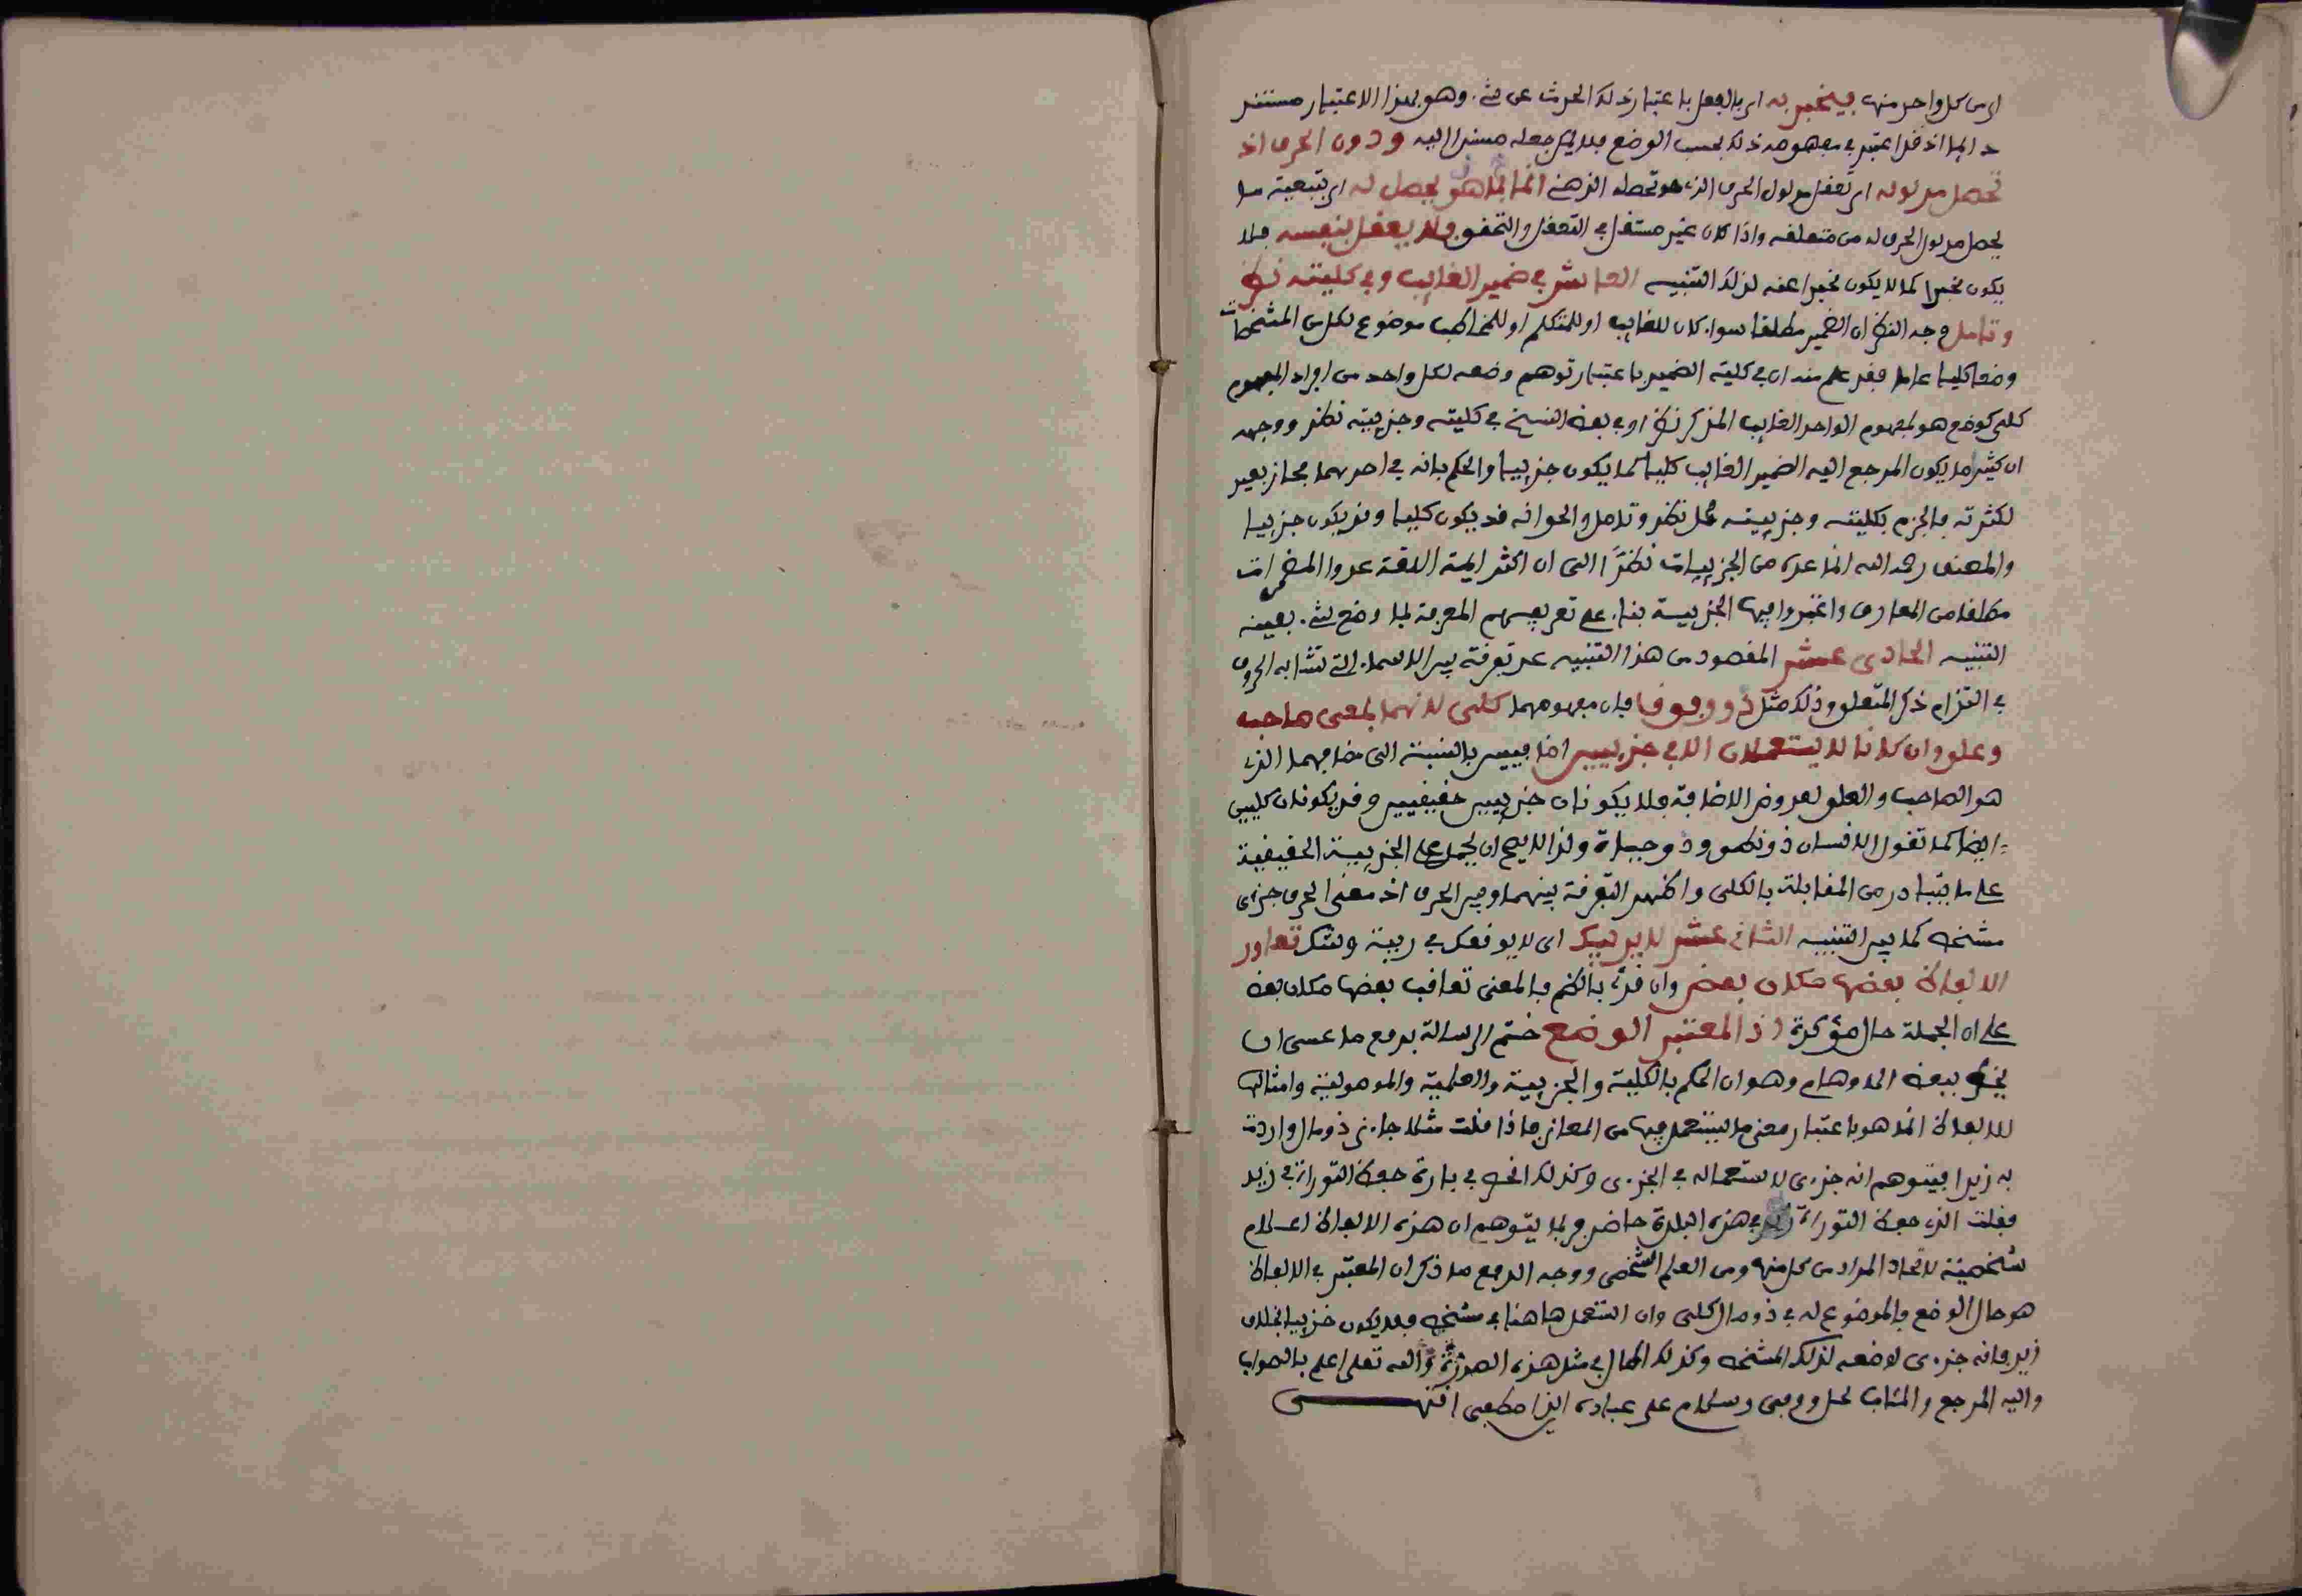 اي من كل واحد منها فيخبر به اي بالفعل باعتبار ذلك الحدث عن شيء وهو بهذا الاعتبار مستند
دائما اذ قد اعتبر في مفهومه ذلك بحسب الوضع فلا يمكن جعله مسندا اليه ودون الحرف اذ
تحصل مدلوله اي تعقل مدلول الحرف الذي هو تحصله الذهني انما بما هو يحصل له اي بتبعية ما
يحصل مدلول الحرف له من متعلقه واذا كان غير مستقل في التعقل والتحقق فلا يعقل بنفسه فلا
يكون مخبرا كما لا يكون مخبرا عنه لذلك التنبيه العاشر في ضمير الغايب وفي كليته نظر
وتامل وجه النظر ان الضمير مطلقا سواء كان للغايب او للمتكلم او للمخاطب موضوع لكل من المشخصات
وضعا كليا عاما فقد علم منه ان في كلية الضمير باعتبار توهم وضعه لكل واحد من افراد المفهوم
كلي كوضع هو لمفهوم الواحد الغايب المذكر نظر او في بعض النسخ في كليته وجزييته نظر ووجهه
ان كثيرا ما يكون المرجع اليه الضمير الغايب كليا كما يكون جزييا والحكم بانه في احدهما مجاز بعيد
لكثرته فالجزم بكليته وجزييته محل نظر وتامل والحق انه قد يكون كليا وقد يكون جزييا
والمصنف رحمه الله انما عده من الجزييات نظرا الى ان اكثر ايمة اللغة عدوا المضمرات
مطلقا من المعارف واعتبروا فيها الجزيية بناء على تعريفهم المعرفة بما وضع لشيء بعينه
التنبيه الحادي عشر المقصود من هذا التنبيه عد تفرقة بين الاسماء التي تشابه الحروف
في التزام ذكر المتعلق وذلك مثل ذو وفوق فان مفهومهما كلي لانهما بمعنى صاحب
وعلو وان كانا لا يستعملان الا في جزييين اضافيين بالنسبة الى مضافهما الذي
هو الصاحب والعلو لعروض الاضافة فلا يكونان جزييين حقيقيين وقد يكونان كليين
ايضا كما تقول الانسان ذو نطق وذو حياة ولذا لا يصح ان يحمل على الجزيية الحقيقية
على ما يتبادر من المقابلة بالكلي واظهر التفرقة بينهما وبين الحرف اذ معنى الحرف جزءي
مشخص كما بين التنبيه الثاني عشر لا يريبك اي لا يوقعك في ريبة وشك تعاور
الالفاظ بعضها مكان بعض وان قرئ بالضم فالمعنى تعاقب بعضها مكان بعض
على ان الجملة حال مؤكدة اذ المعتبر الوضع ختم الرسالة بدفع ما عسى ان
يخطر ببعض الاوهام وهو ان الحكم بالكلية والجزيية والعلمية والموصولية وامثالها
للالفاظ انما هو باعتبار معنى ما يستعمل فيها من المعاني فاذا قلت مثلا جاءني ذو مال واردت
به زيدا فيتوهم انه جزءي لاستعماله في الجزءي وكذلك انحصر في بارة حفظ التوراة في زيد
فقلت الذي حفظ التوراة في هذه البلدة حاضر فربما يتوهم ان هذه الالفاظ اعلام
شخصية لاتحاد المراد من كل منها ومن العلم الشخصي ووجه الدفع ما ذكر ان المعتبر في الالفاظ
هو حال الوضع فالموضوع له في ذو مال كلي وان استعمل هاهنا في مشخص فلا يكون جزييا بخلاف
زيد فانه جزءي لوضعه لذلك المشخص وكذلك الحال في مثل هذه الصورة والله تعلى اعلم بالصواب
واليه المرجع والمئاب لكل ووفى وسلام على عباده الذين اصطفى انتهى